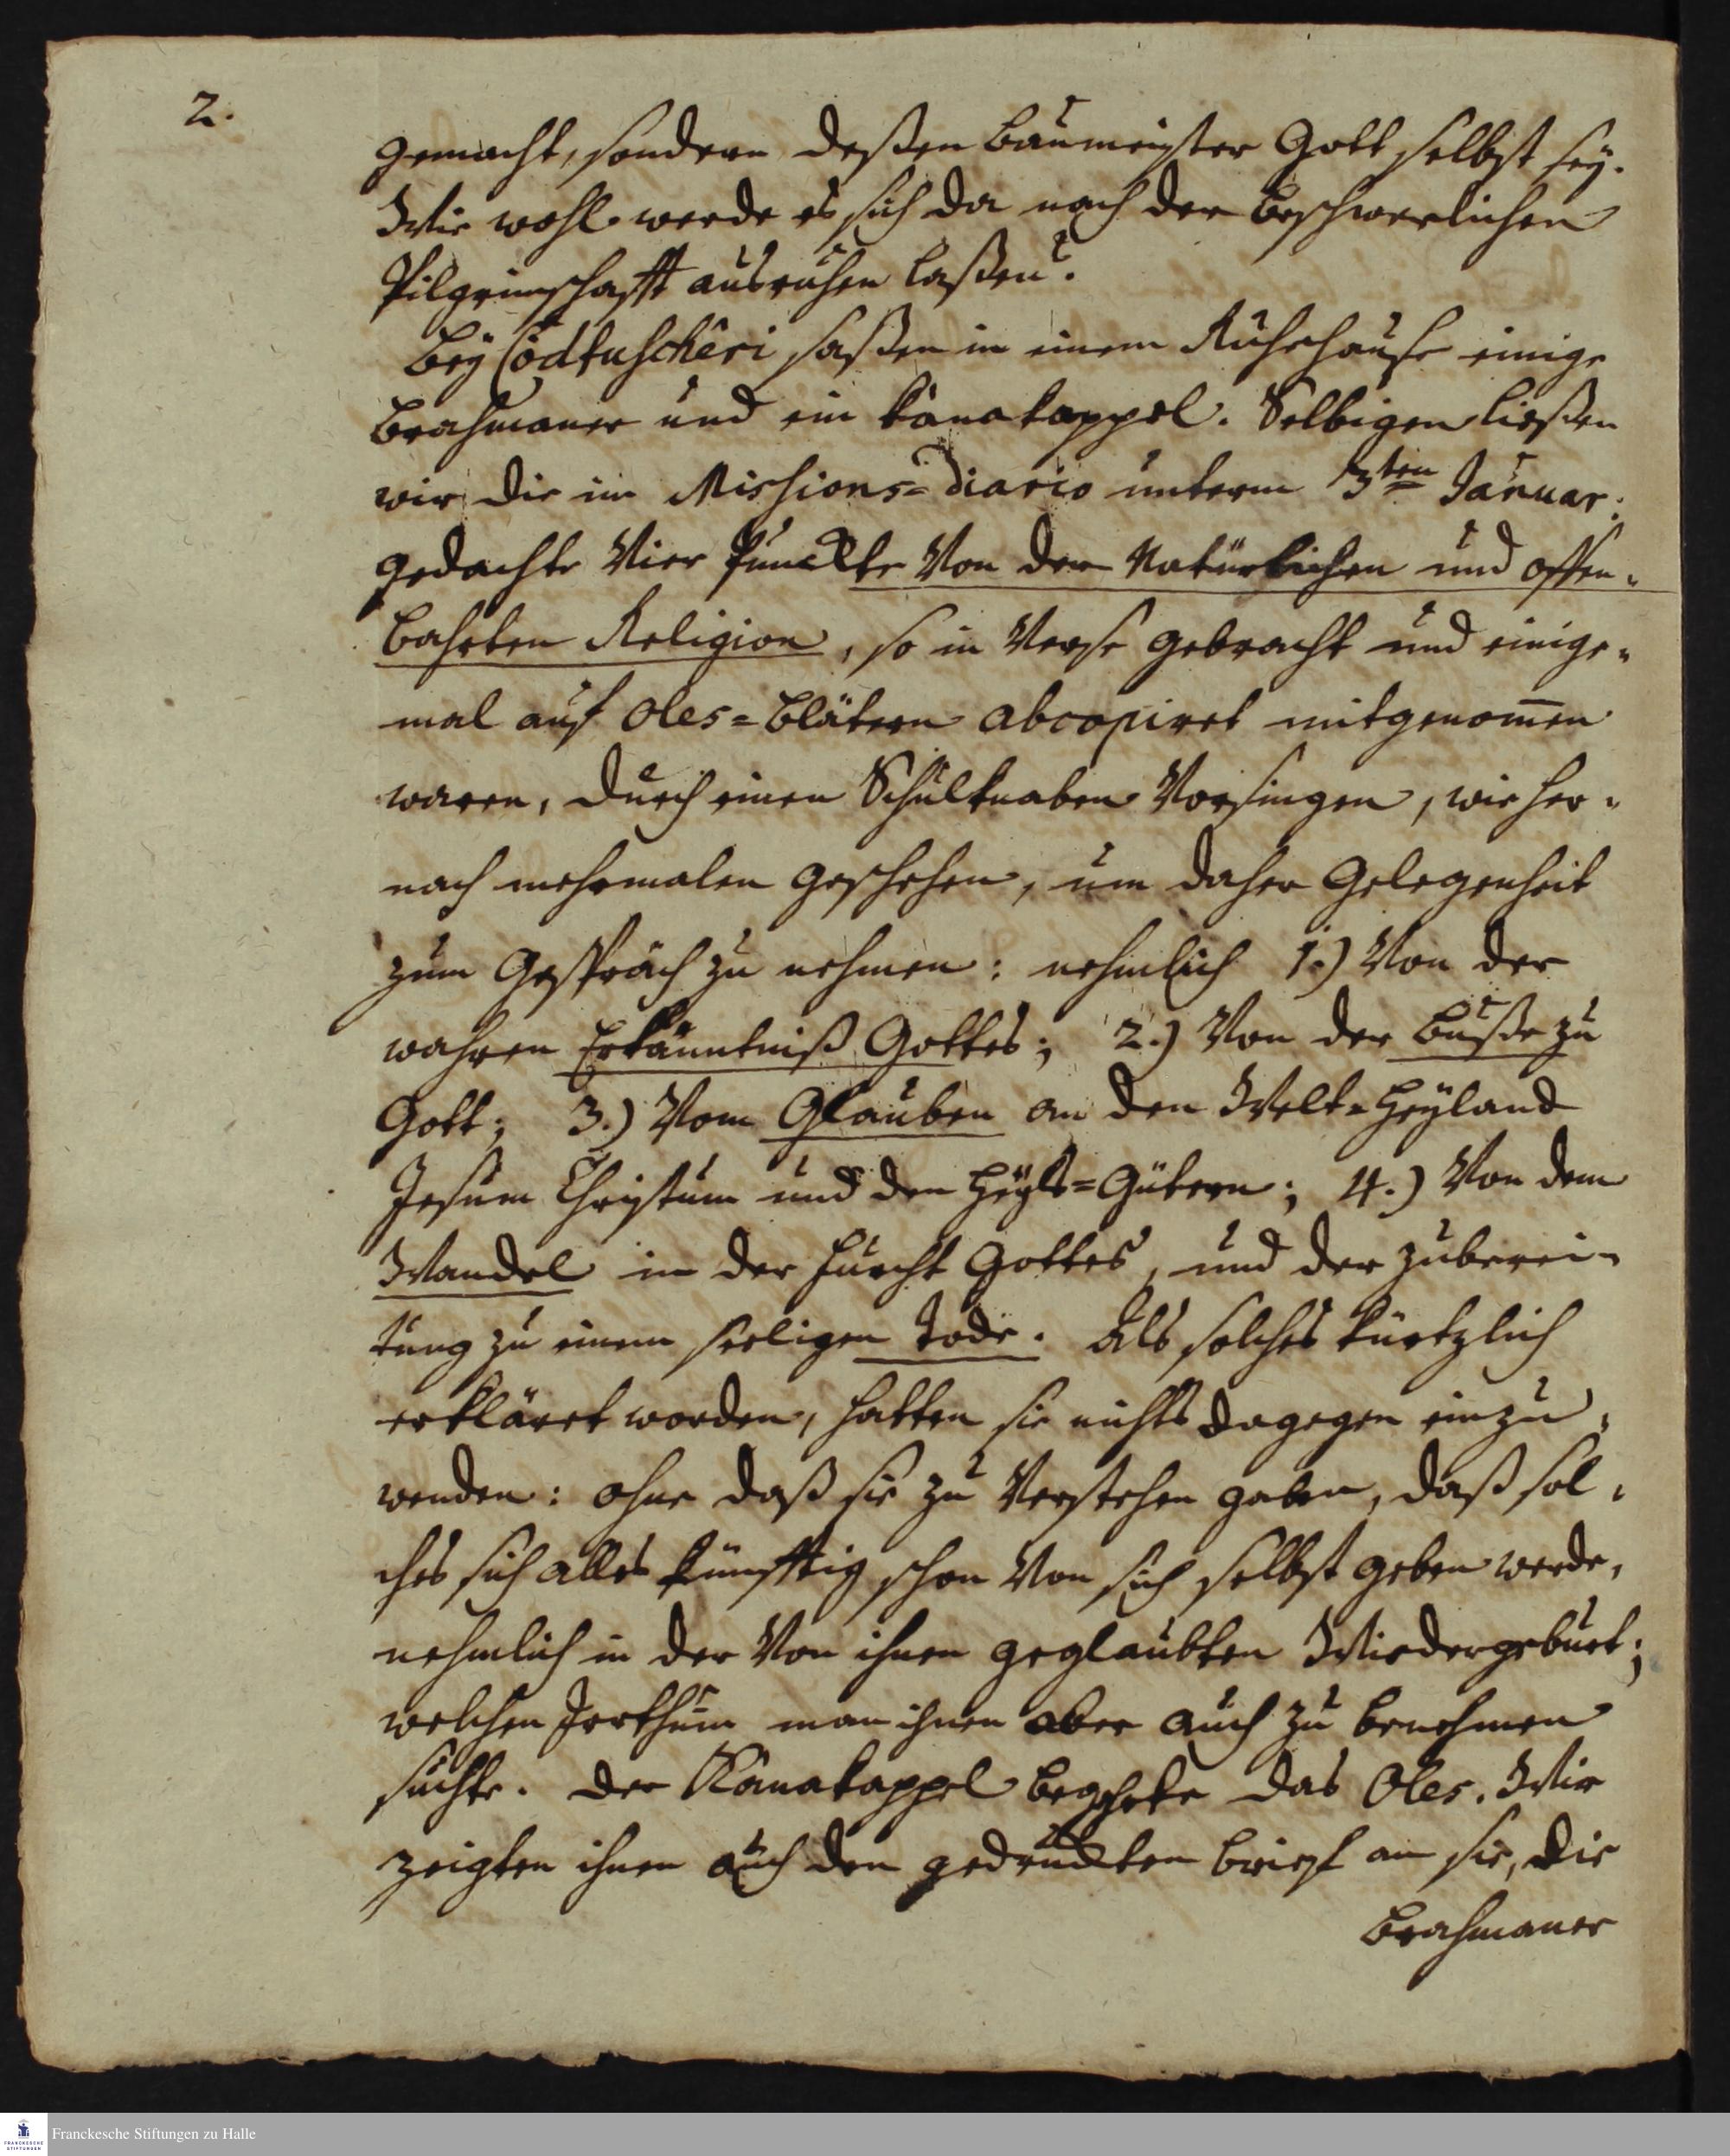 2.
gemacht, sondern deßen Baumeister Gott selbst seÿ.
Wie wohl werde es sich da nach der beschwerlichen
Pilgrimschafft ausruhen laßen.
Beÿ Codtuschêri saßen in einem Ruhehause einige
Brahmaner und ein Kanakappel. Selbigen ließen
wir die im Missions=Diario unterm 3ten Januar:
gedachte Vier Punckte Von der Natürlichen und offen=
bahrten Religion, so in Verse gebracht und einige=
mal auf Oles=Blätern abcopiret mitgenom̄en
waren, durch einen Schulknaben Vorsingen, wie her=
nach mehrmalen geschehen, um daher Gelegenheit
zum Gespräch zu nehmen: nehmlich 1.) Von der
wahren Erkänntniß Gottes; 2.) Von der Buße zu
Gott; 3.) Vom Glauben an den Welt=Heÿland
Jesum Christum und den Heÿls=Gütern; 4.) Von dem
Wandel in der Furcht Gottes, und der Zuberei=
tung zu einem seeligen Tode. Als solches kürtzlich
erkläret worden, hatten sie nichts dagegen einzu=
wenden: ohne daß sie zu Verstehen gaben, daß sol=
ches sich alles künfftig schon Von sich selbst geben werde,
nehmlich in der Von ihnen geglaubten Wiedergeburt;
welchen Irrthum man ihnen aber auch zu benehmen
suchte. Der Kanakappel begehrte das Oles. Wir
zeigten ihnen auch den gedruckten Brief an sie, die
Brahmaner
Franckesche Stiftungen zu Halle